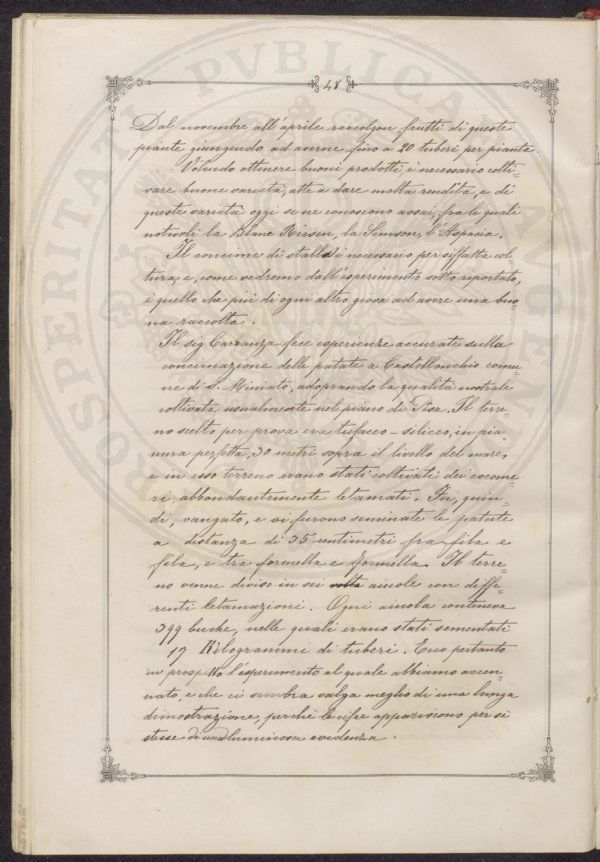 48
Dal novembre all'aprile raccolgon frutti di queste
piante giungendo ad averne fino a 20 tuberi per piante.
Volendo ottenere buoni prodotti, è necessario colti=
vare buone varietà, atte a dare molta rendita, e di
queste varietà oggi se ne conoscono assai, fra le quali
notevoli la Blanc Riesen, la Simson, l'Aspasia.
Il concime di stalla è necessario per siffatta col
tura, e, come vedremo dall'esperimento sotto riportato,
è quello che più di ogni altro giova ad avere una buo=
na raccolta.
Il sig Carranza fece esperienze accurate sulla
concimazione delle patate a Castellonchio comu
ne di S. Miniato, adoprando la qualità nostrale
coltivata usualmente nel piano di Pisa. Il terre=
no scelto per prova era siliceo, in pia=
nura perfetta, 30 metri sopra il livello del mare,
e in esso terreno erano stati coltivati dei cocome=
ri abbondantemente letamati. Fu, quin=
di, vangato, e vi furono seminate le patate
a distanza di 35 centimetri fra fila e
fila, e tra formella e formella. Il terre=
no venne diviso in sei volte aiuole con diffe=
renti letamazioni. Ogni aiuola conteneva
399 buche, nelle quali erano stati sementati
17 Kilogrammi di tuberi. Ecco pertanto
in prospetto l'esperimento al quale abbiamo accen=
nato, e che ci sembra valga meglio di una lunga
dimostrazione, perchè le cifre appariscono per sè
stesse di una luminosa evidenza.
PROSPERITATI PVBLICAE AVGEN